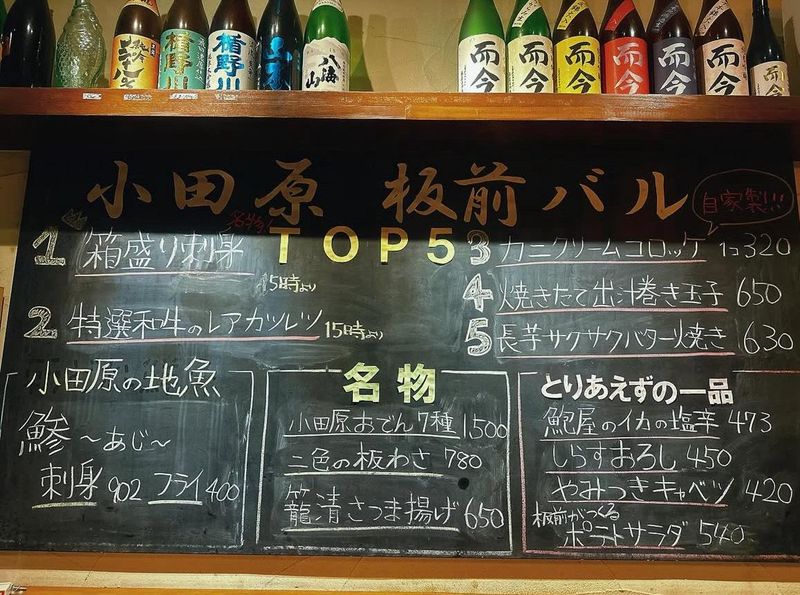 楯野川
楯野川
八海山
而今
而今
而今
而今
而今
而今
而今
小田原 板前バル
自家製!!!
名物
TOP5
1 箱盛り刺身
15時より
2 特選和牛のレアカツレツ 15時より
3 カニクリームコロッケ 1コ320
4 焼きたて出汁巻き玉子 650
5 長芋サクサクバター焼き 630
小田原の地魚
鯵 ～あじ～
刺身 902 フライ 400
名物
小田原おでん7種 1500
二色の板わさ 780
籠清さつま揚げ 650
とりあえずの一品
鮑屋のイカの塩辛 473
しらすおろし 450
やみつきキャベツ 420
板前がつくる
ポテトサラダ 540